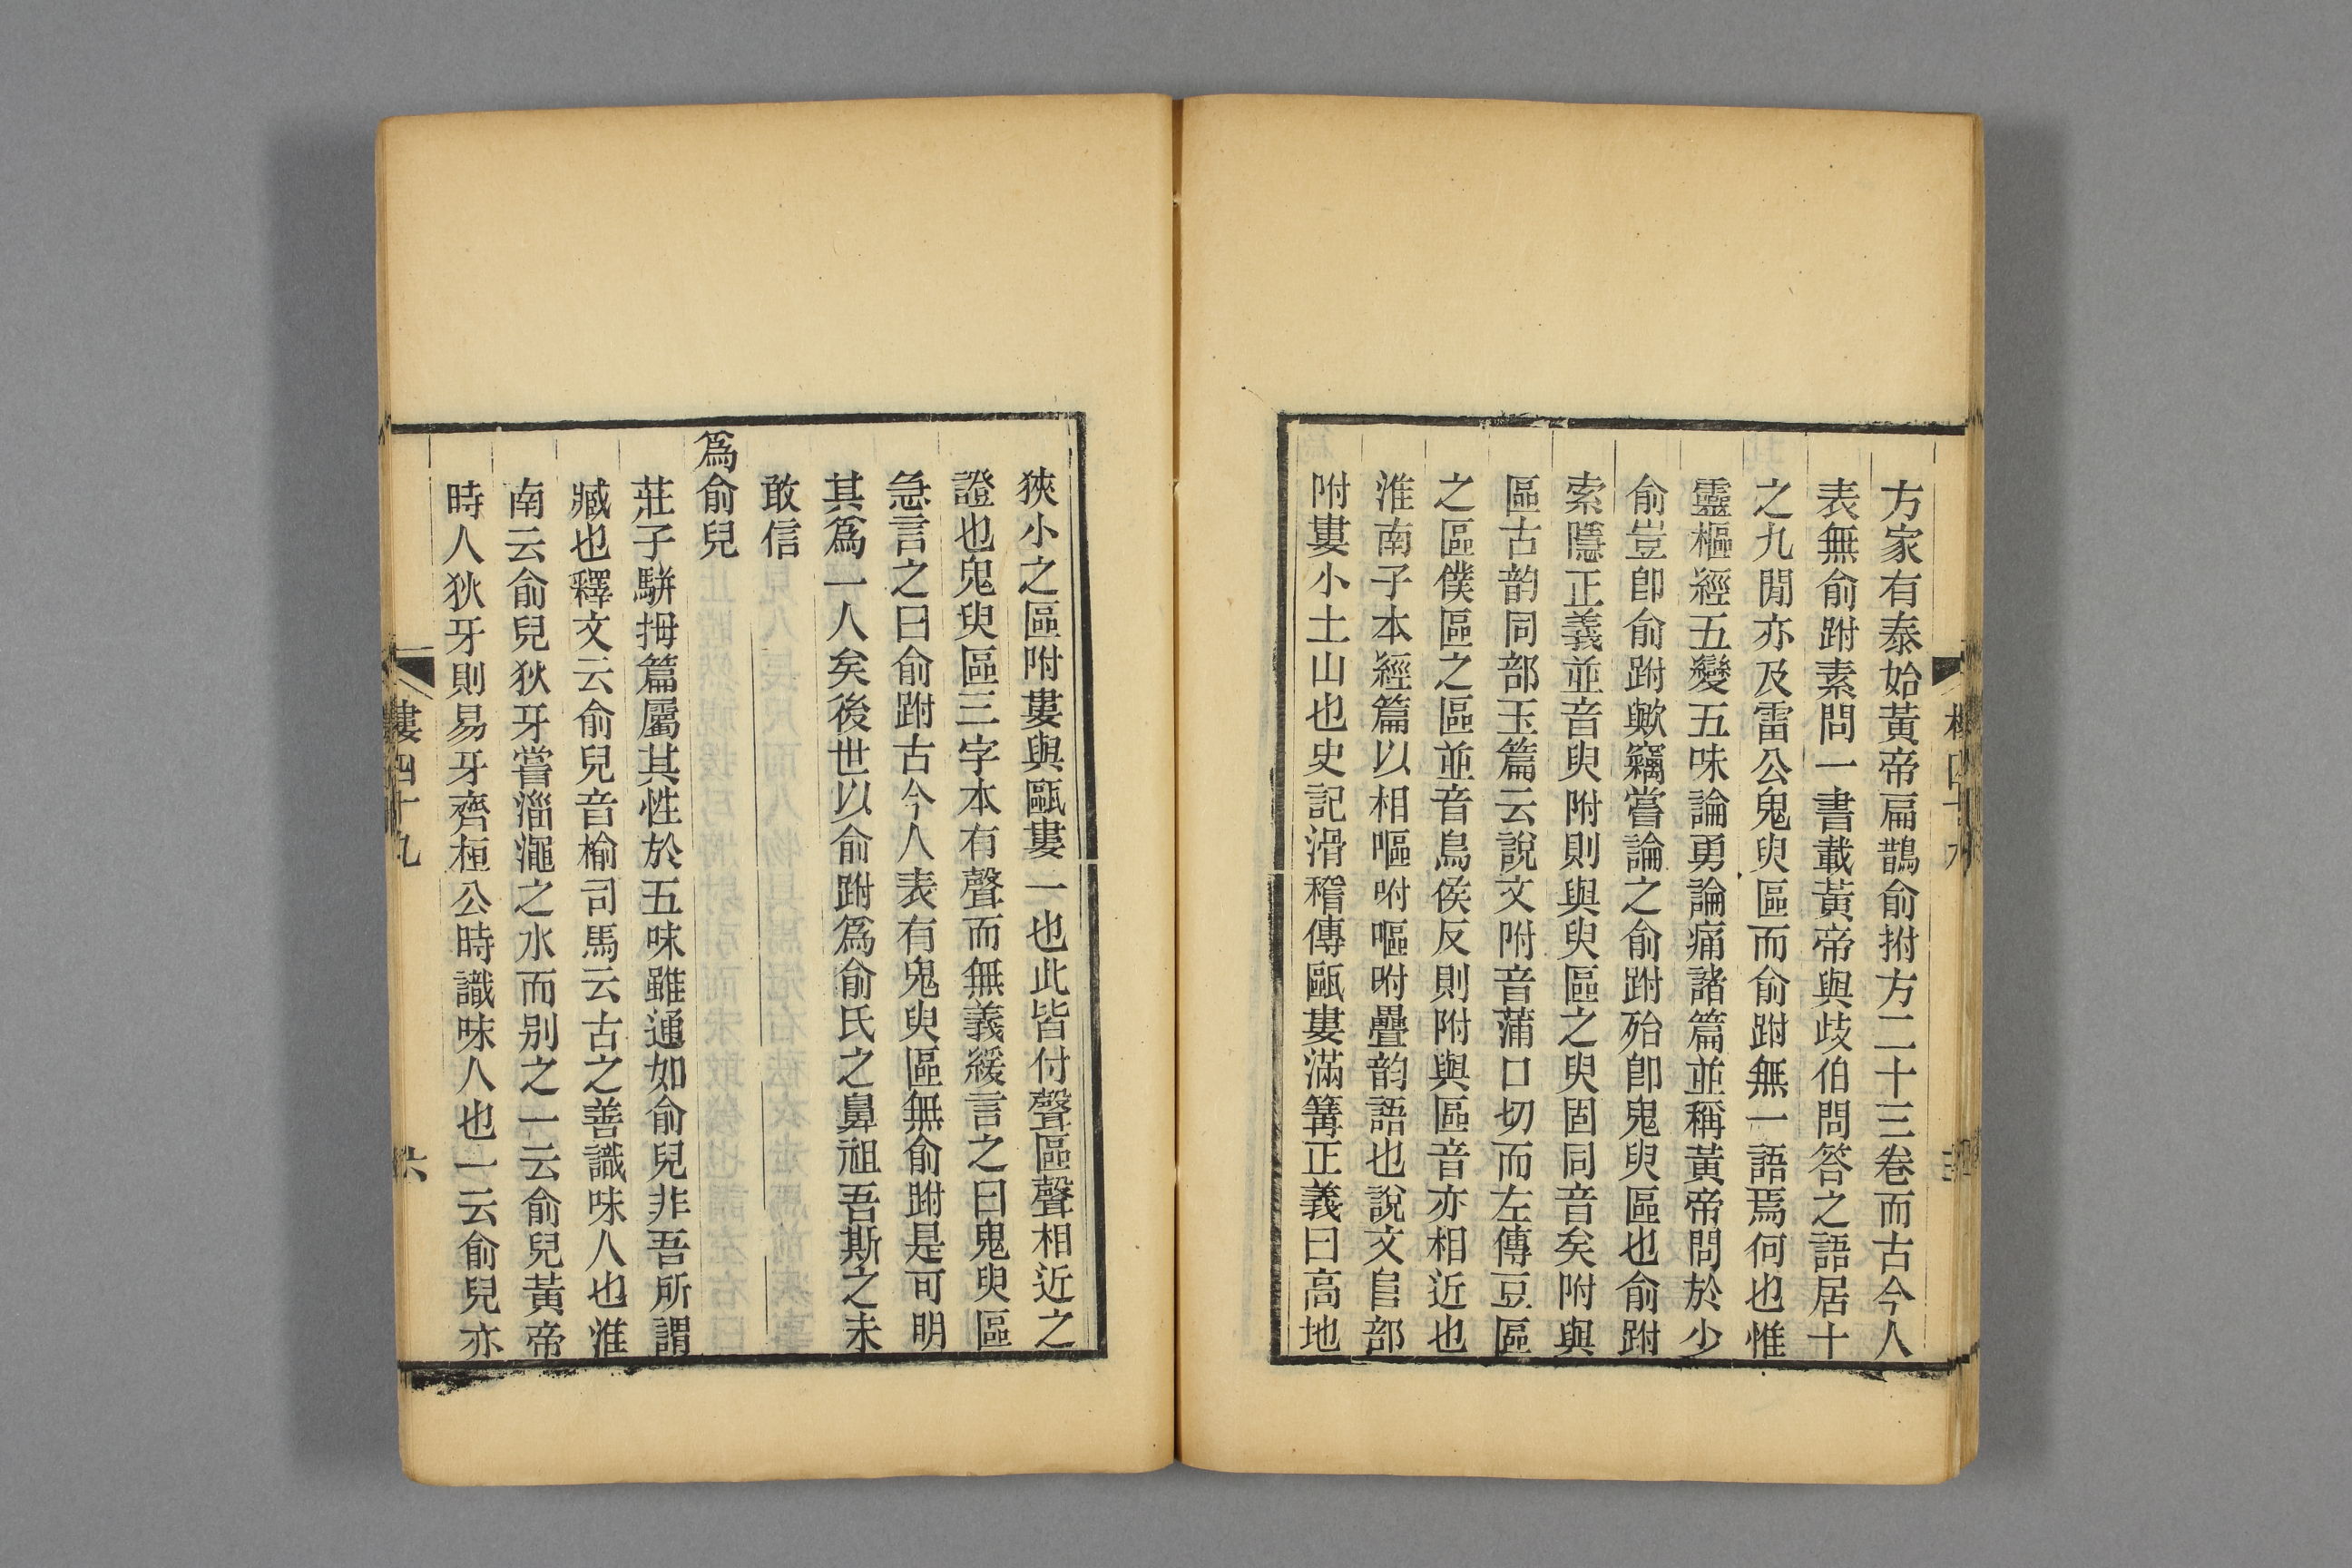 方家有泰始黃帝扁鵲俞拊方二十三卷而古今人
表無俞跗素問一書載黃帝與歧伯問答之語居十
之九閒亦及雷公鬼臾區而俞跗無一語焉何也惟
靈樞經五變五味論勇論痛諸篇並稱黃帝問於少
俞豈卽俞跗歟竊嘗論之俞跗殆卽鬼臾區也俞跗
索隱正義並音臾附則與臾區之臾固同音矣附與
區古韵同部玉篇云說文附音蒲口切而左傳豆區
之區僕區之區並音烏侯反則附與區音亦相近也
淮南子本經篇以相嘔咐嘔咐疊韵語也說文𨸏部
附婁小土山也史記滑稽傳甌婁滿篝正義曰高地
狹小之區附婁與甌婁一也此皆付聲區聲相近之
證也鬼臾區三字本有聲而無義緩言之曰鬼臾區
急言之曰俞跗古今人表有鬼臾區無俞跗是可明
其爲一人矣後世以俞跗爲俞氏之鼻祖吾斯之未
敢信
爲俞兒
莊子駢拇篇屬其性於五味雖通如俞兒非吾所謂
臧也釋文云俞兒音榆司馬云古之善識味人也淮
南云俞兒狄牙嘗淄澠之水而別之一云俞兒黃帝
時人狄牙則易牙齊桓公時識味人也一云俞兒亦
婁四十九
六